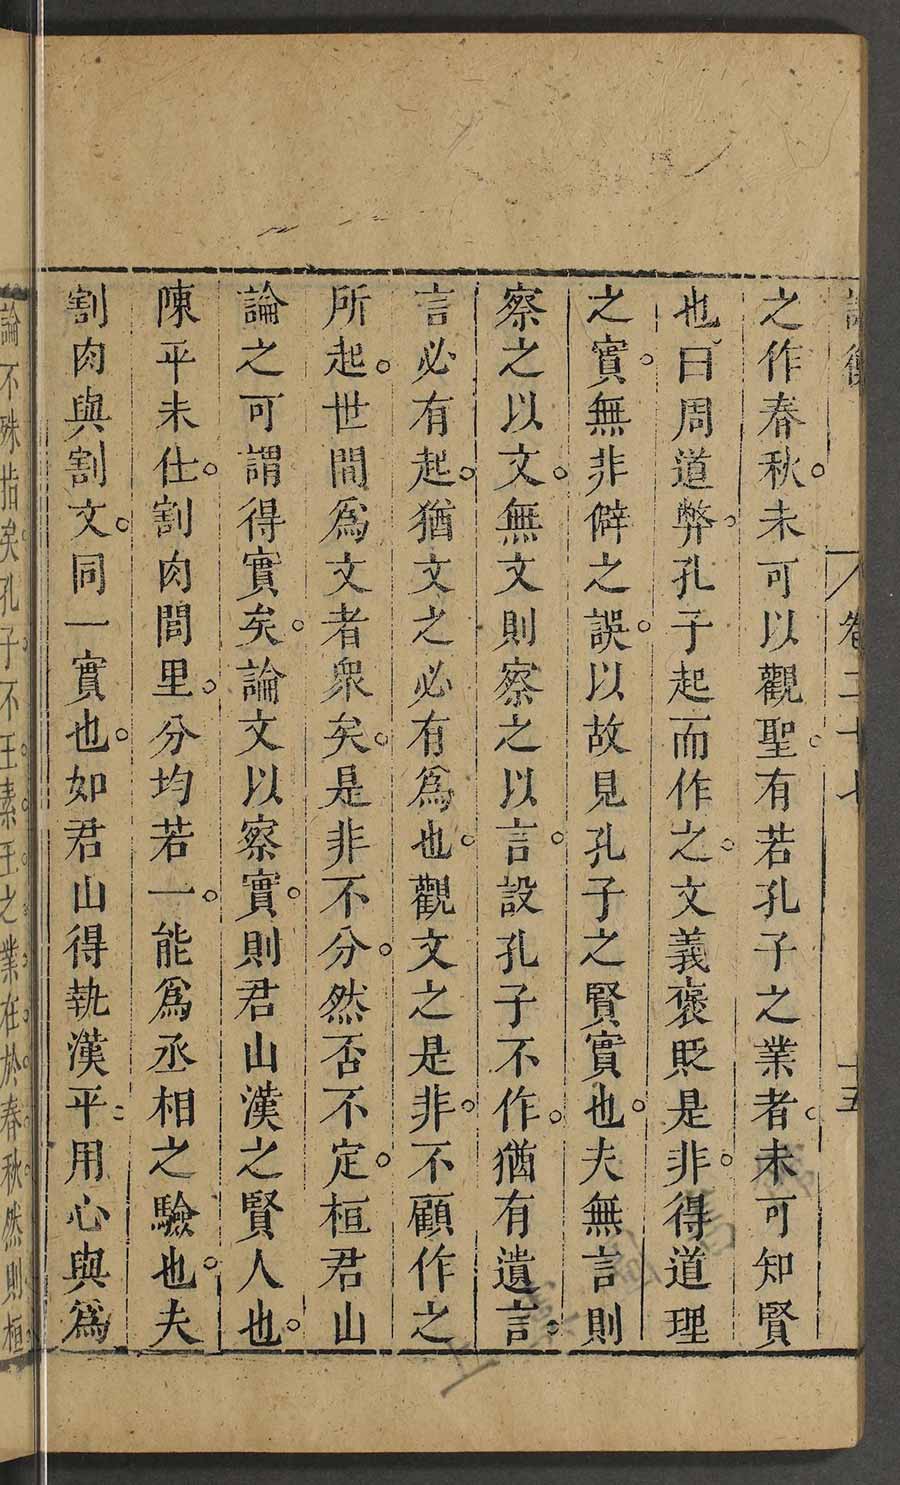 論衡 卷二十七 十五
之作春秋。未可以觀聖。有若孔子之業者。未可知賢
也。曰周道弊。孔子起而作之。文義褒貶是非。得道理
之實。無非僻之誤。以故見孔子之賢實也。夫無言則
察之以文。無文則察之以言。設孔子不作。猶有遺言。
言必有起。猶文之必有爲也。觀文之是非。不顧作之
所起。世間爲文者衆矣。是非不分。然否不定。桓君山
論之可謂得實矣。論文以察實。則君山漢之賢人也。
陳平未仕。割肉閭里。分均若一。能爲丞相之驗也。夫
割肉與割文。同一實也。如君山得執漢平。用心與爲
論不殊指矣。孔子不王。素王之業在於春秋。然則桓